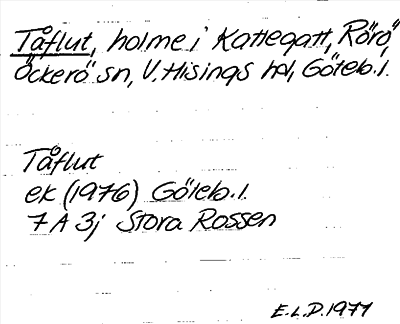 Tåflut, holme i Kattegatt, Rörö
Öckerö sn, V. Hisings hd, Göteb. l.
Tåflut
ek (1976) Göteb. l.
7 A 3j Stora Rossen
E.L.D. 1977